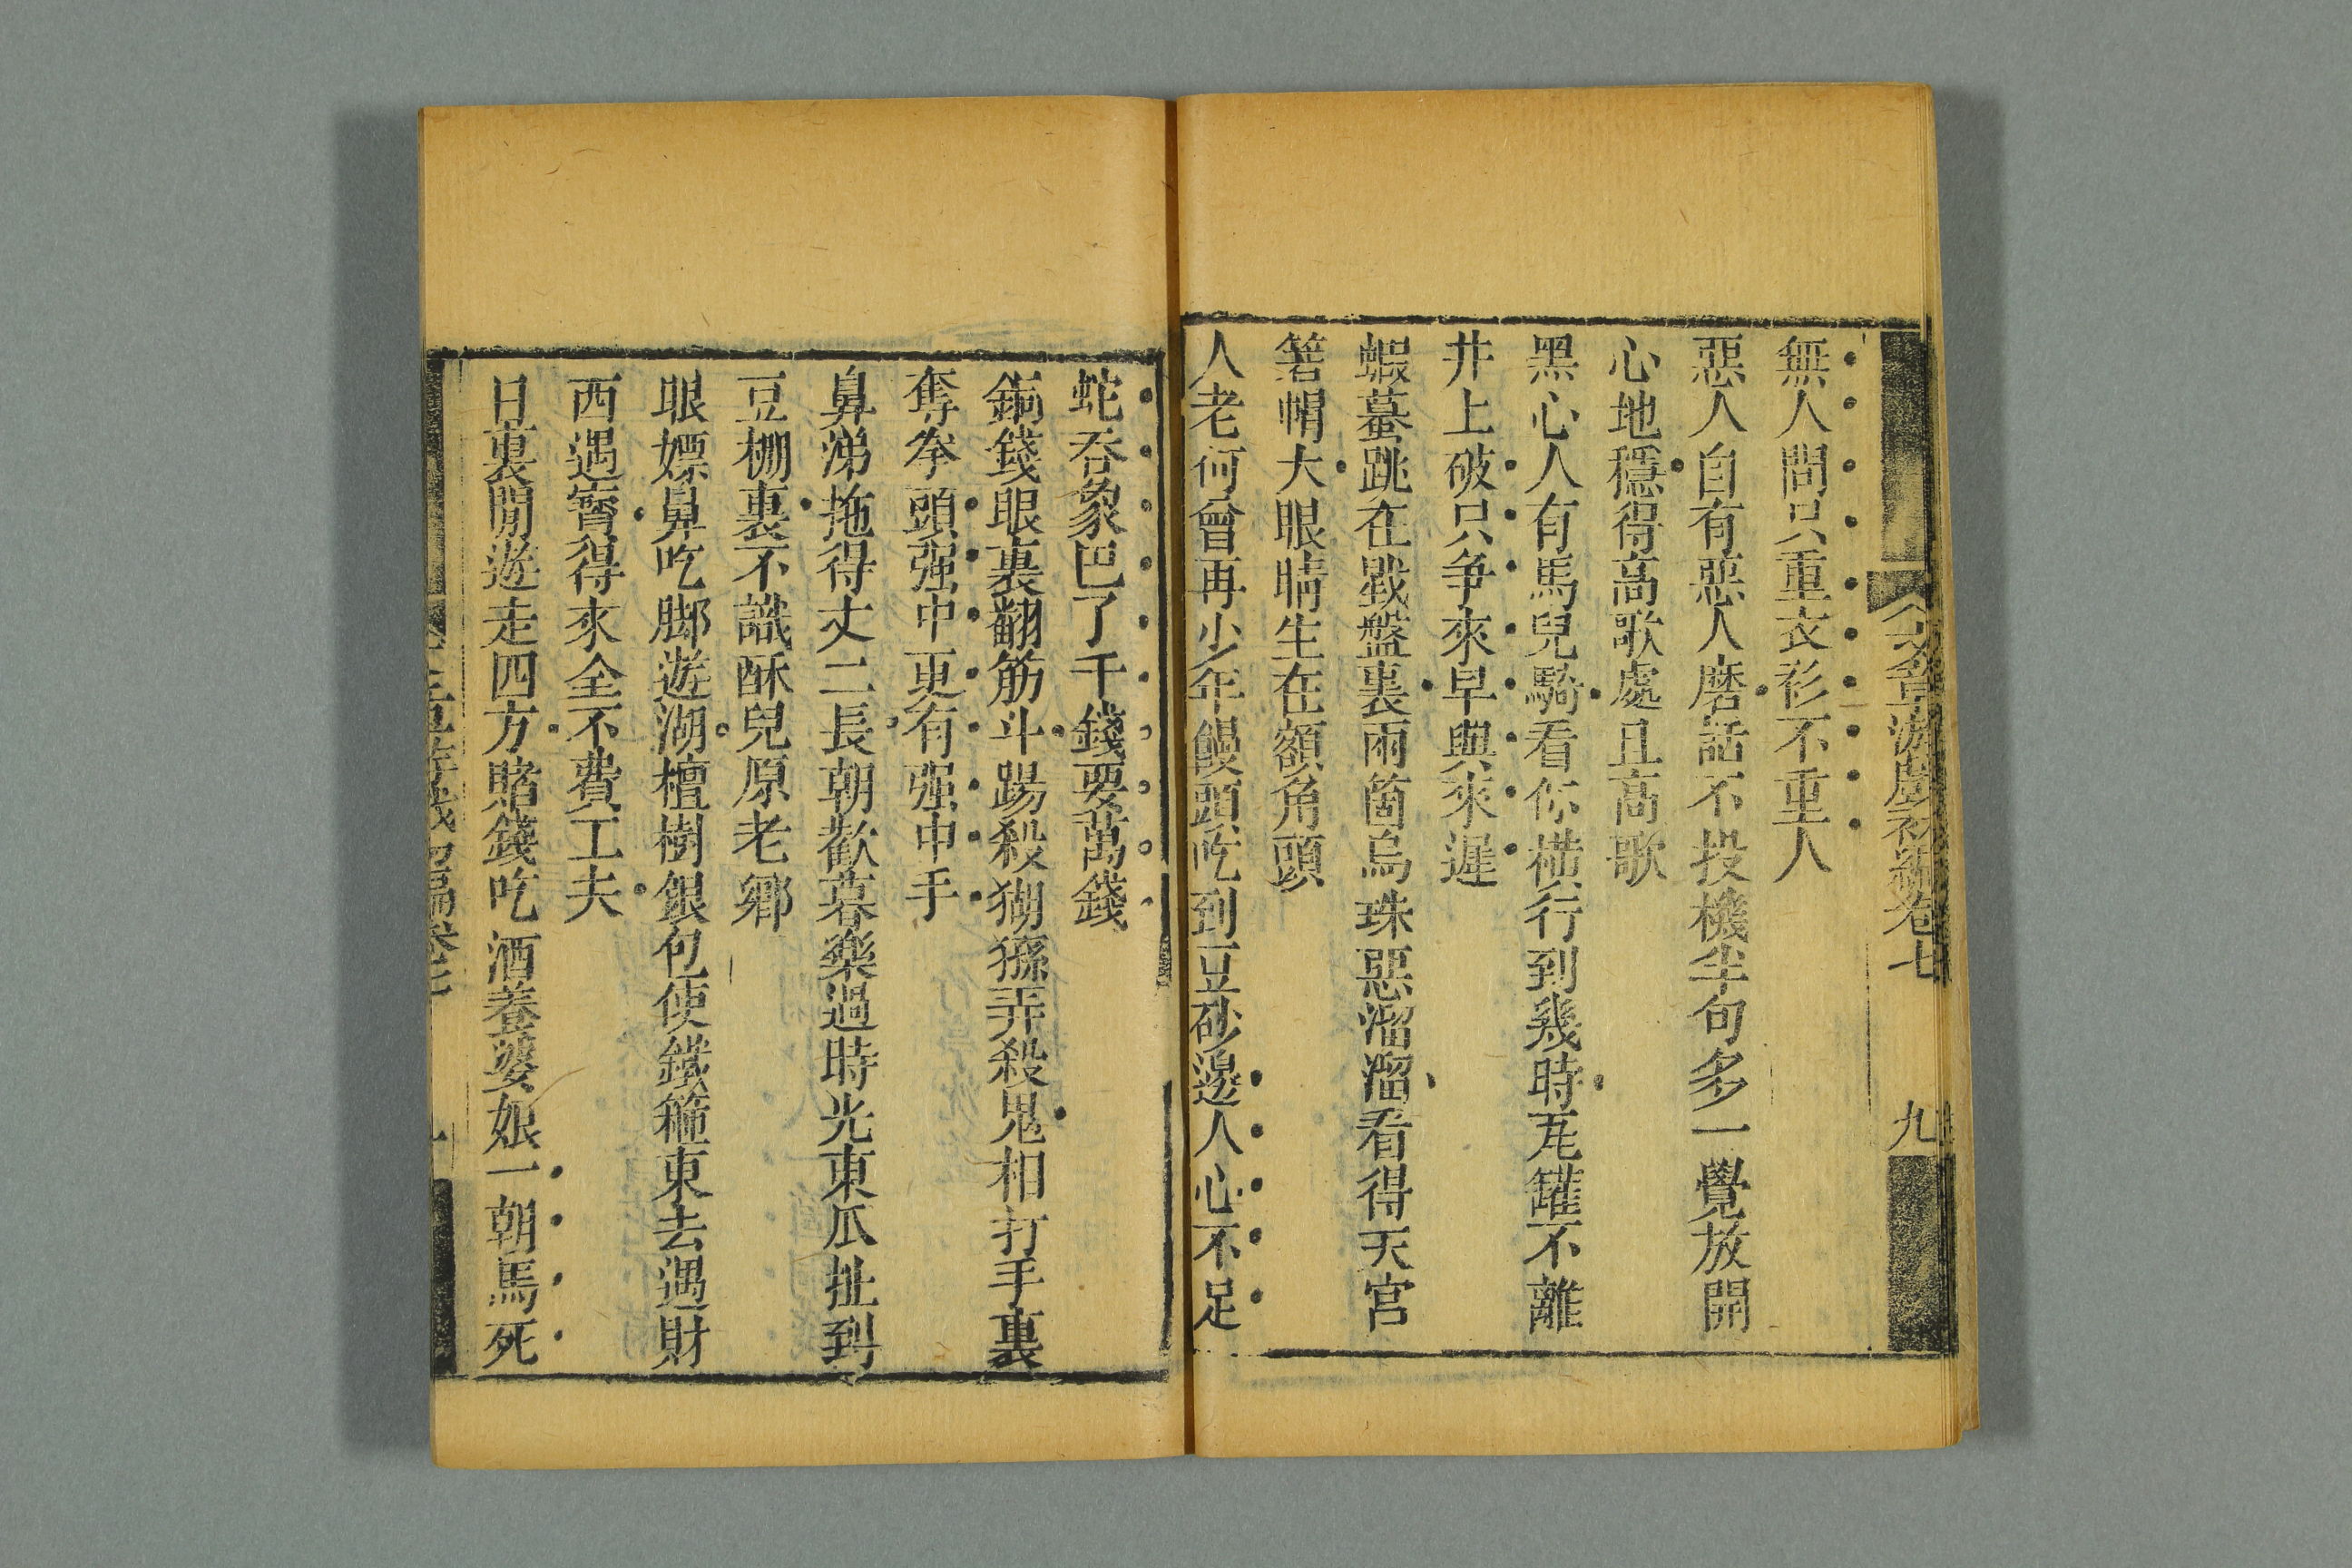 文章游戲初編卷七
九
無人問只重衣衫不重人
惡人自有惡人磨話不投機半句多一覺放開
心地穩得高歌處且高歌
黑心人有馬兒騎看你橫行到幾時瓦罐不離
井上破只争來早與來遲
蝦蟇跳在戥盤裏兩箇烏珠惡溜溜看得天宮
箬帽大眼睛生在額角頭
人老何曾再少年饅頭吃到豆砂邊人心不足
蛇吞象巴了千錢要萬錢
銅錢眼裏翻筋斗踢殺猢猻弄殺鬼相打手裏
奪拳頭强中更有强中手
鼻涕拖得丈二長朝歡暮樂過時光東瓜扯到
豆棚裏不識酥兒原老鄉
眼嫖鼻吃脚遊湖檀樹銀包使鐵箍東去遇財
西遇寶得來全不費工夫
日裏閒遊走四方賭錢吃酒養婆娘一朝馬死